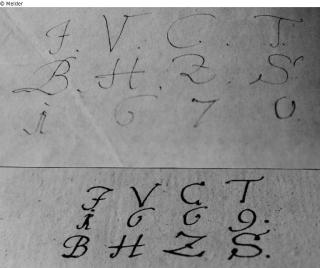 © Melder
F. V. C. T.
B. H. Z. S.
A 6 7 0.
F V C T
A 6 6 9.
B H Z S.